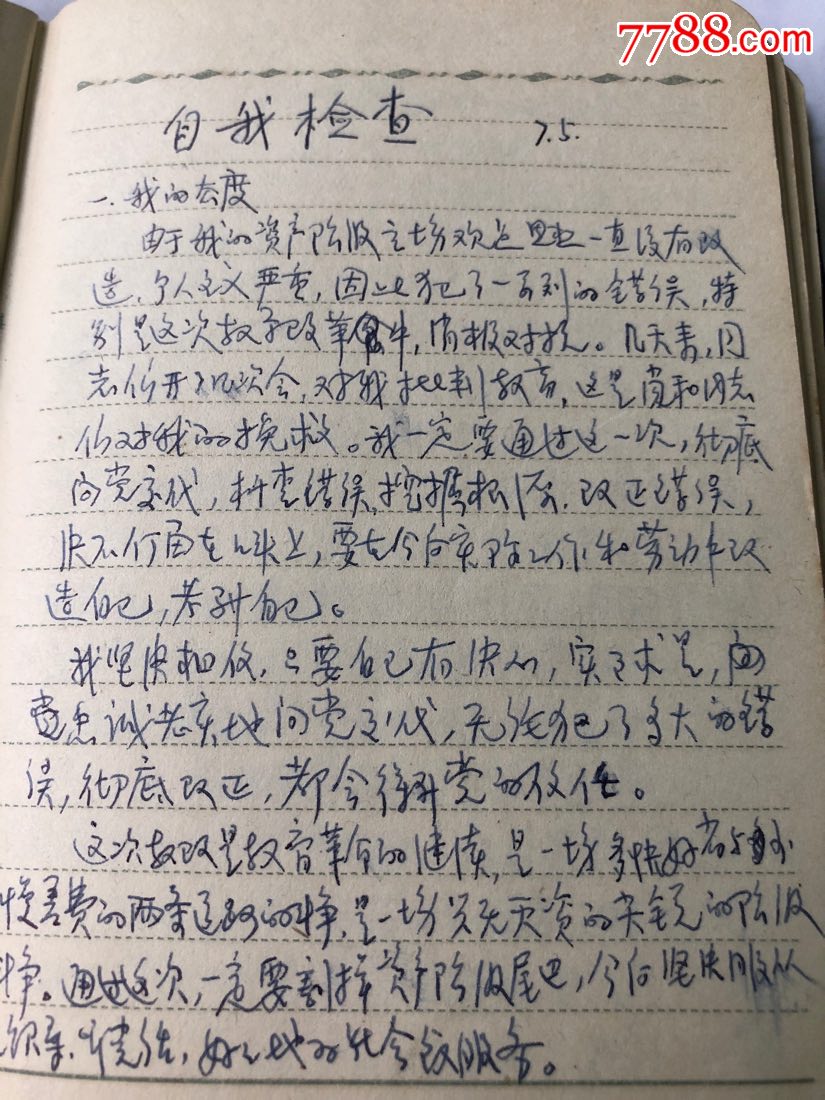 7788.com
自我检查 7.5.
一.我的态度
由于我的资产阶级立场观点思想一直没有改
造，个人主义严重，因此犯了一系列的错误，特
别是这次教学改革中，消极对抗。几天来，同
志们开了几次会，对我批判教育，这是党和同志
们对我的挽救。我一定要通过这一次，彻底
向党交代，检查错误，挖掘根源，改正错误，
决不停留在口头上，要在今后实际工作和劳动中改
造自己，考验自己。
我坚决相信，只要自己有决心，实事求是，向
党忠诚老实地向党交代，无论犯了多大的错
误，彻底改正，都会得到党的信任。
这次教改是教育革命的继续，是一场多快好省与少
慢差费的两条道路的斗争，是一场兴无灭资的尖锐的阶级
斗争。通过这次，一定要割掉资产阶级尾巴，今后坚决服从
领导，听党话，好好地为社会主义服务。